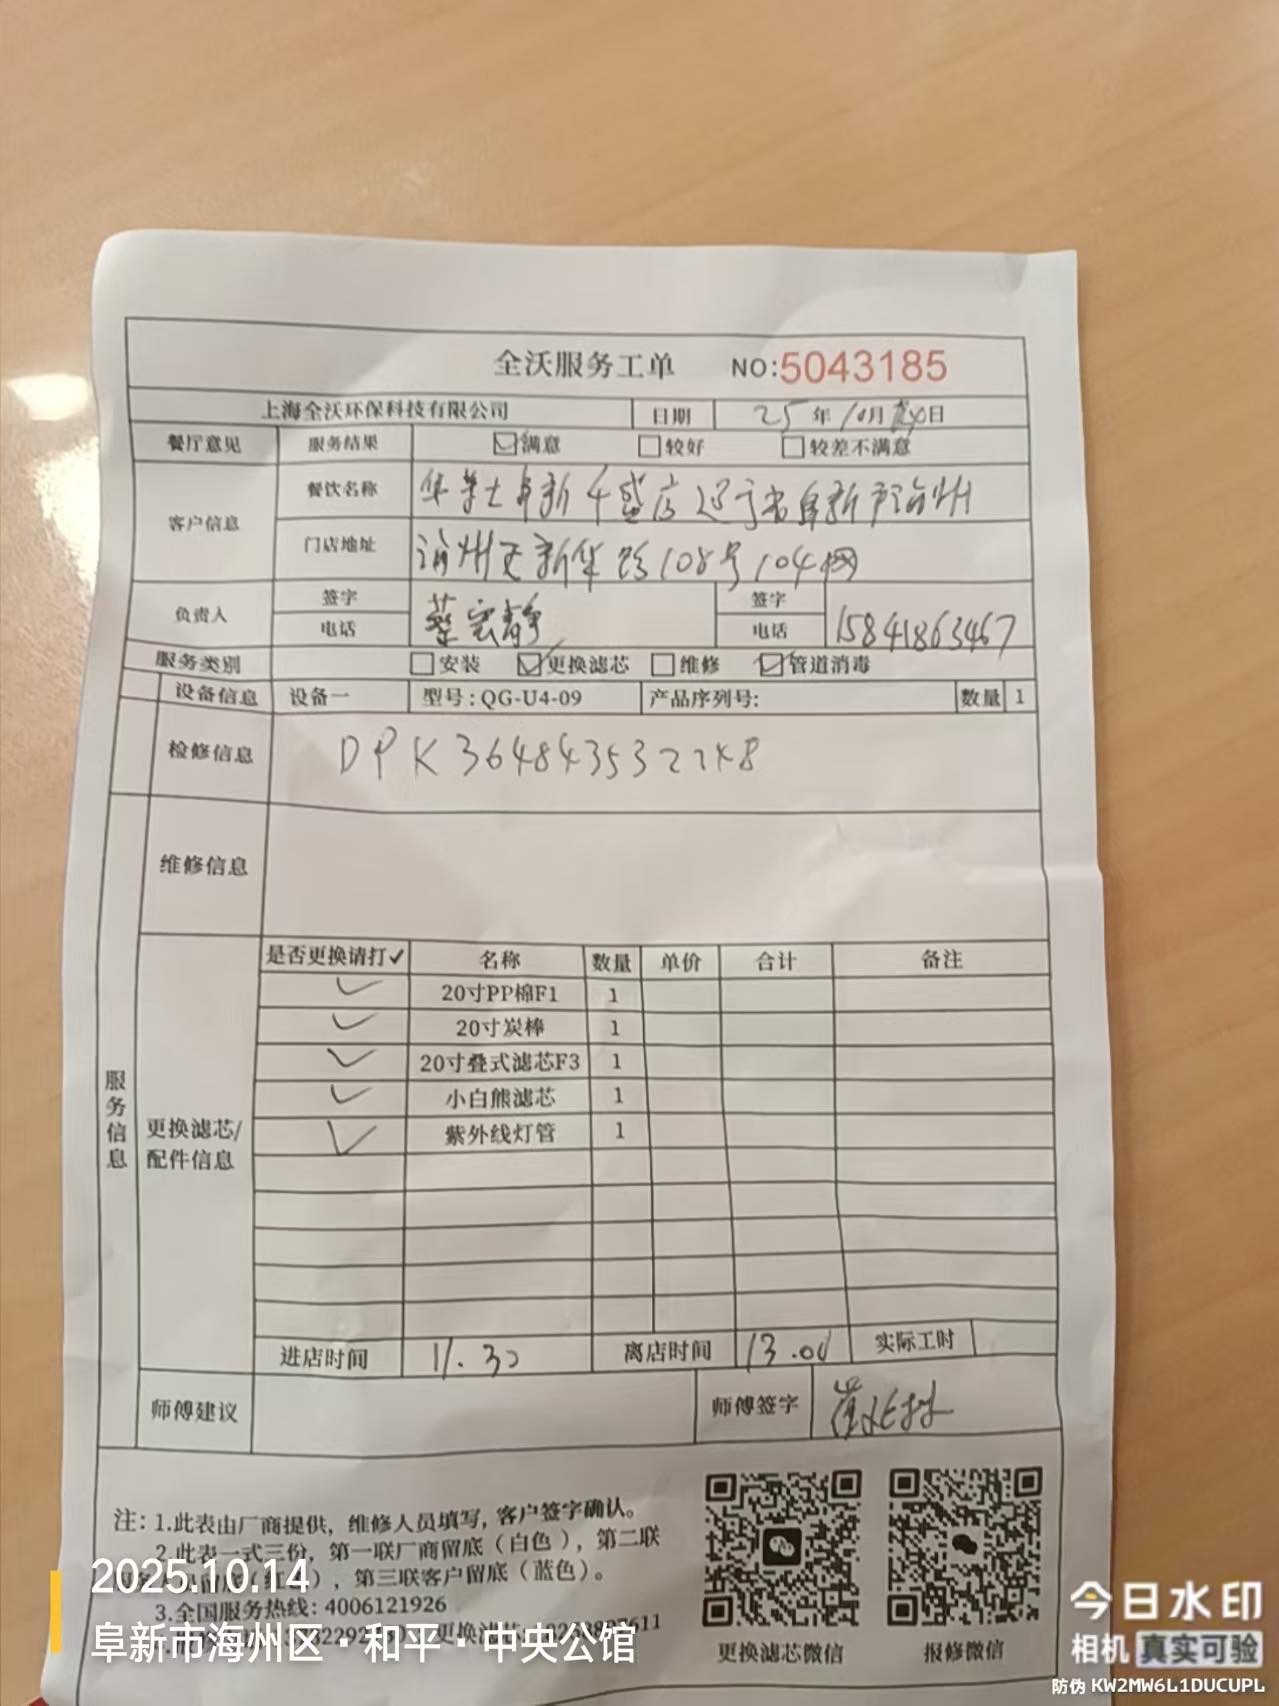 全沃服务工单 NO:5043185
上海全沃环保科技有限公司 日期 25年10月日
餐厅意见 服务结果 满意 较好 较差不满意
客户信息 餐饮名称 华莱士阜新千盛店辽宁省阜新市海州
门店地址 海州区新华路108号104网
负责人 签字 签字
电话 电话 15841863467
服务类别 安装 更换滤芯 维修 管道消毒
设备信息 设备一 型号:QG-U4-09 产品序列号: 数量 1
检修信息 DPK3648435322
维修信息
服务信息
更换滤芯/配件信息
是否更换请打✓ 名称 数量 单价 合计 备注
✓ 20寸PP棉F1 1
✓ 20寸炭棒 1
✓ 20寸叠式滤芯F3 1
✓ 小白熊滤芯 1
✓ 紫外线灯管 1
进店时间 11.30 离店时间 13.00 实际工时
师傅建议 师傅签字
注:1.此表由厂商提供，维修人员填写，客户签字确认。
2.此表一式三份，第一联厂商留底（白色），第二联
），第三联客户留底（蓝色）。
3.全国服务热线:4006121926
更换滤芯微信 报修微信
2025.10.14
阜新市海州区·和平·中央公馆
今日水印
相机 真实可验
防伪 KW2MW6L1DUCUPL